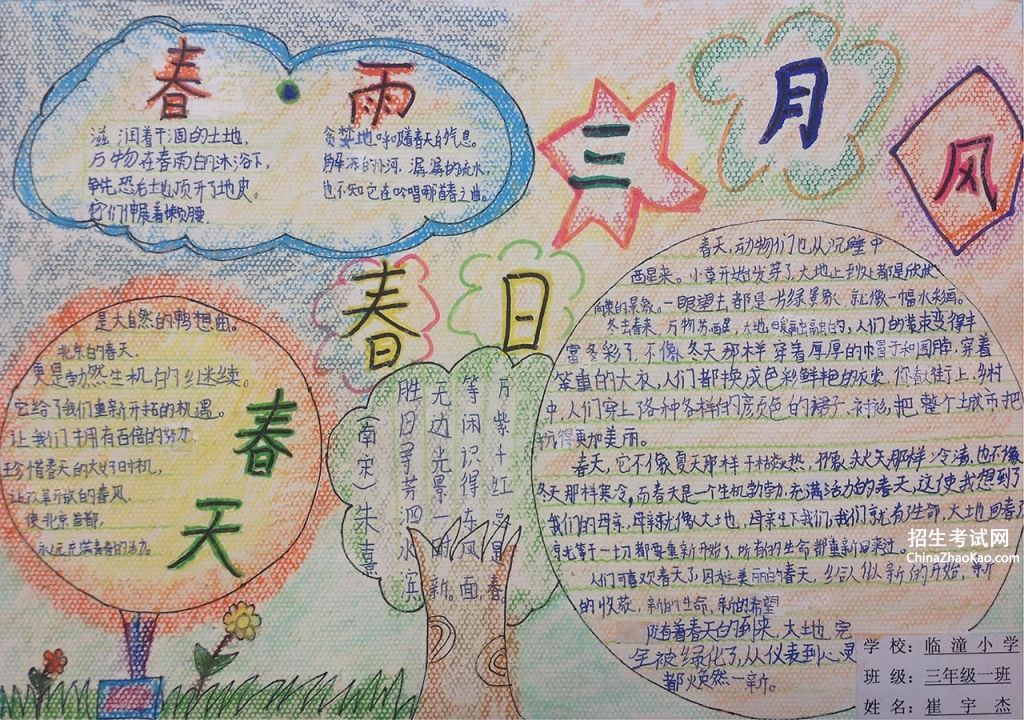 春·雨
滋润着干涸的土地,
万物在春雨的沐浴下,
争先恐后地顶开了地皮。
它们伸展着懒腰
贪婪地呼吸着春天的气息。
解冻的小河,潺潺的流水
也不知它在吟唱哪首春之曲。
三月风
春日
胜日寻芳泗水滨
无边光景一时新。
等闲识得东风面,
万紫千红总是春。
(南宋)朱熹
春天
是大自然的畅想曲。
北京的春天,
更是勃然生机的继续。
它给了我们重新开拓的机遇。
让我们拥有百倍的努力,
珍惜春天的大好时机,
让改革开放的春风,
使北京首都,
永远充满青春的活力。
春天,动物们也从沉睡中
醒来。小草开始发芽了,大地上到处都是欣欣
向荣的景象。一眼望去都是一片绿景象,就像一幅水彩画。
冬去春来,万物苏醒,大地
人们的着装变得丰
富多彩了,不像冬天那样穿着厚厚的帽子和围脖,穿着
笨重的大衣,人们都换成色彩鲜艳的衣裳,你看街上,乡村
中,人们穿上各种各样的颜色的裙子、衬衫,把整个土城市把
扮得更加美丽。
春天,它不像夏天那样干枯炎热,不像秋天那样冷清,也不像
冬天那样寒冷。而春天是一个生机勃勃,充满活力的春天,这使我想到了
我们的母亲,母亲就像大地,母亲生下我们,我们就有了生命,大地回春
一切都要重新开始了,所有的生命都重新回来过。
人们可喜欢春天了,因为美丽的春天,给人似新的开始,新
的收获,新的生命,新的希望
随着春天的到来,大地完
全被绿化了,从仪表到心灵
都焕然一新。
招生考试网
ChinaZhaoKao.com
学校:临潼小学
班级:三年级一班
姓名:崔宇杰